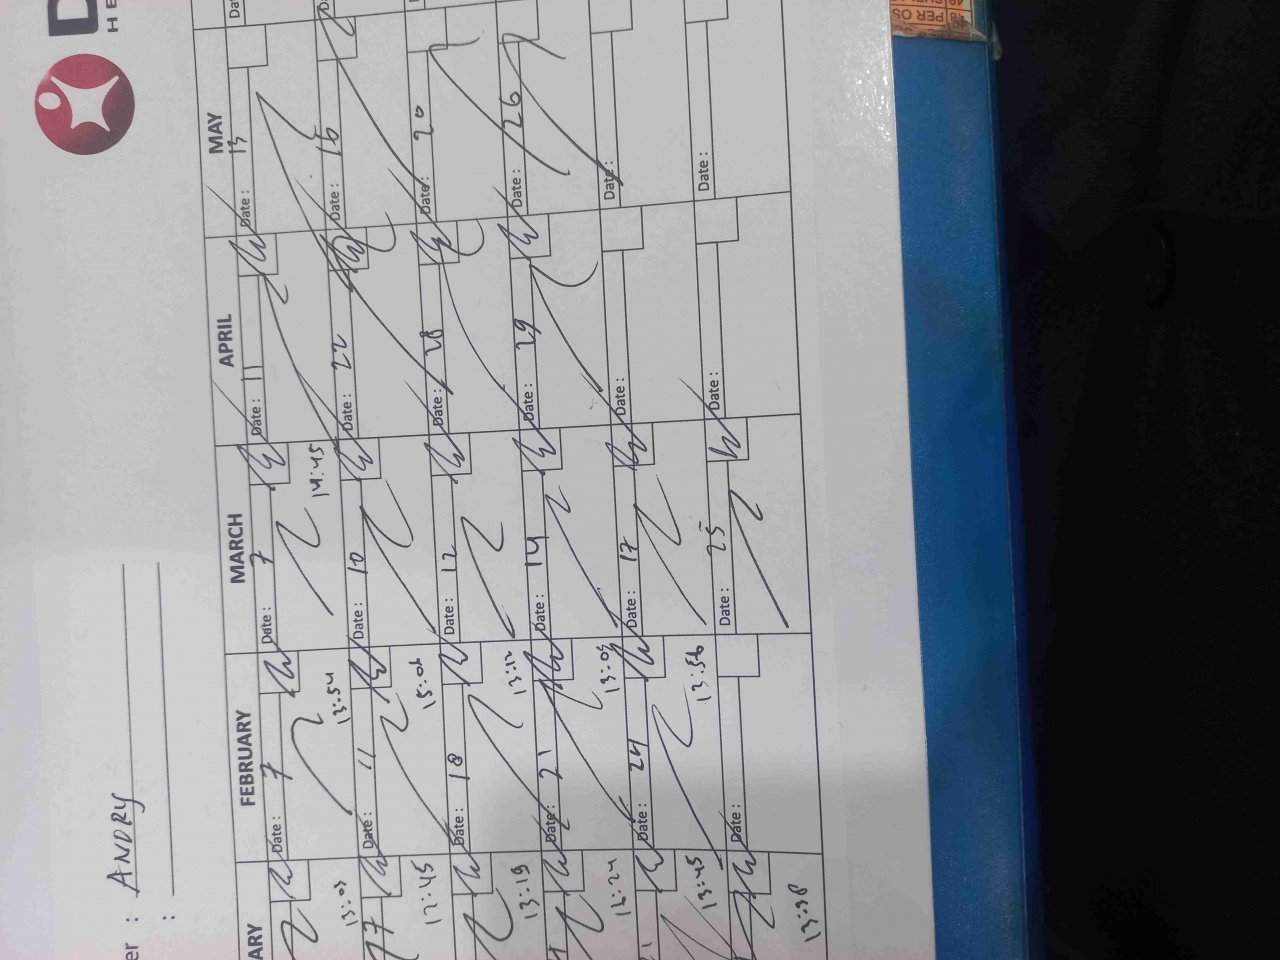 D
HE
er : ANDRY
:
ARY FEBRUARY MARCH APRIL MAY
Date : 7 Date : 7 Date : 11 Date : 13 Dat
13:03 13:54 14:45
17 Date : 11 Date : 10 Date : 22 Date : 16
12:45 15:06
Date : 18 Date : 12 Date : 28 Date : 20
13:19 13:12
Date : 21 Date : 14 Date : 29 Date : 26
13:05
Date : 24 Date : 17 Date : Date :
13:45 13:56
Date : Date : 25 Date : Date :
13:38
PER OS